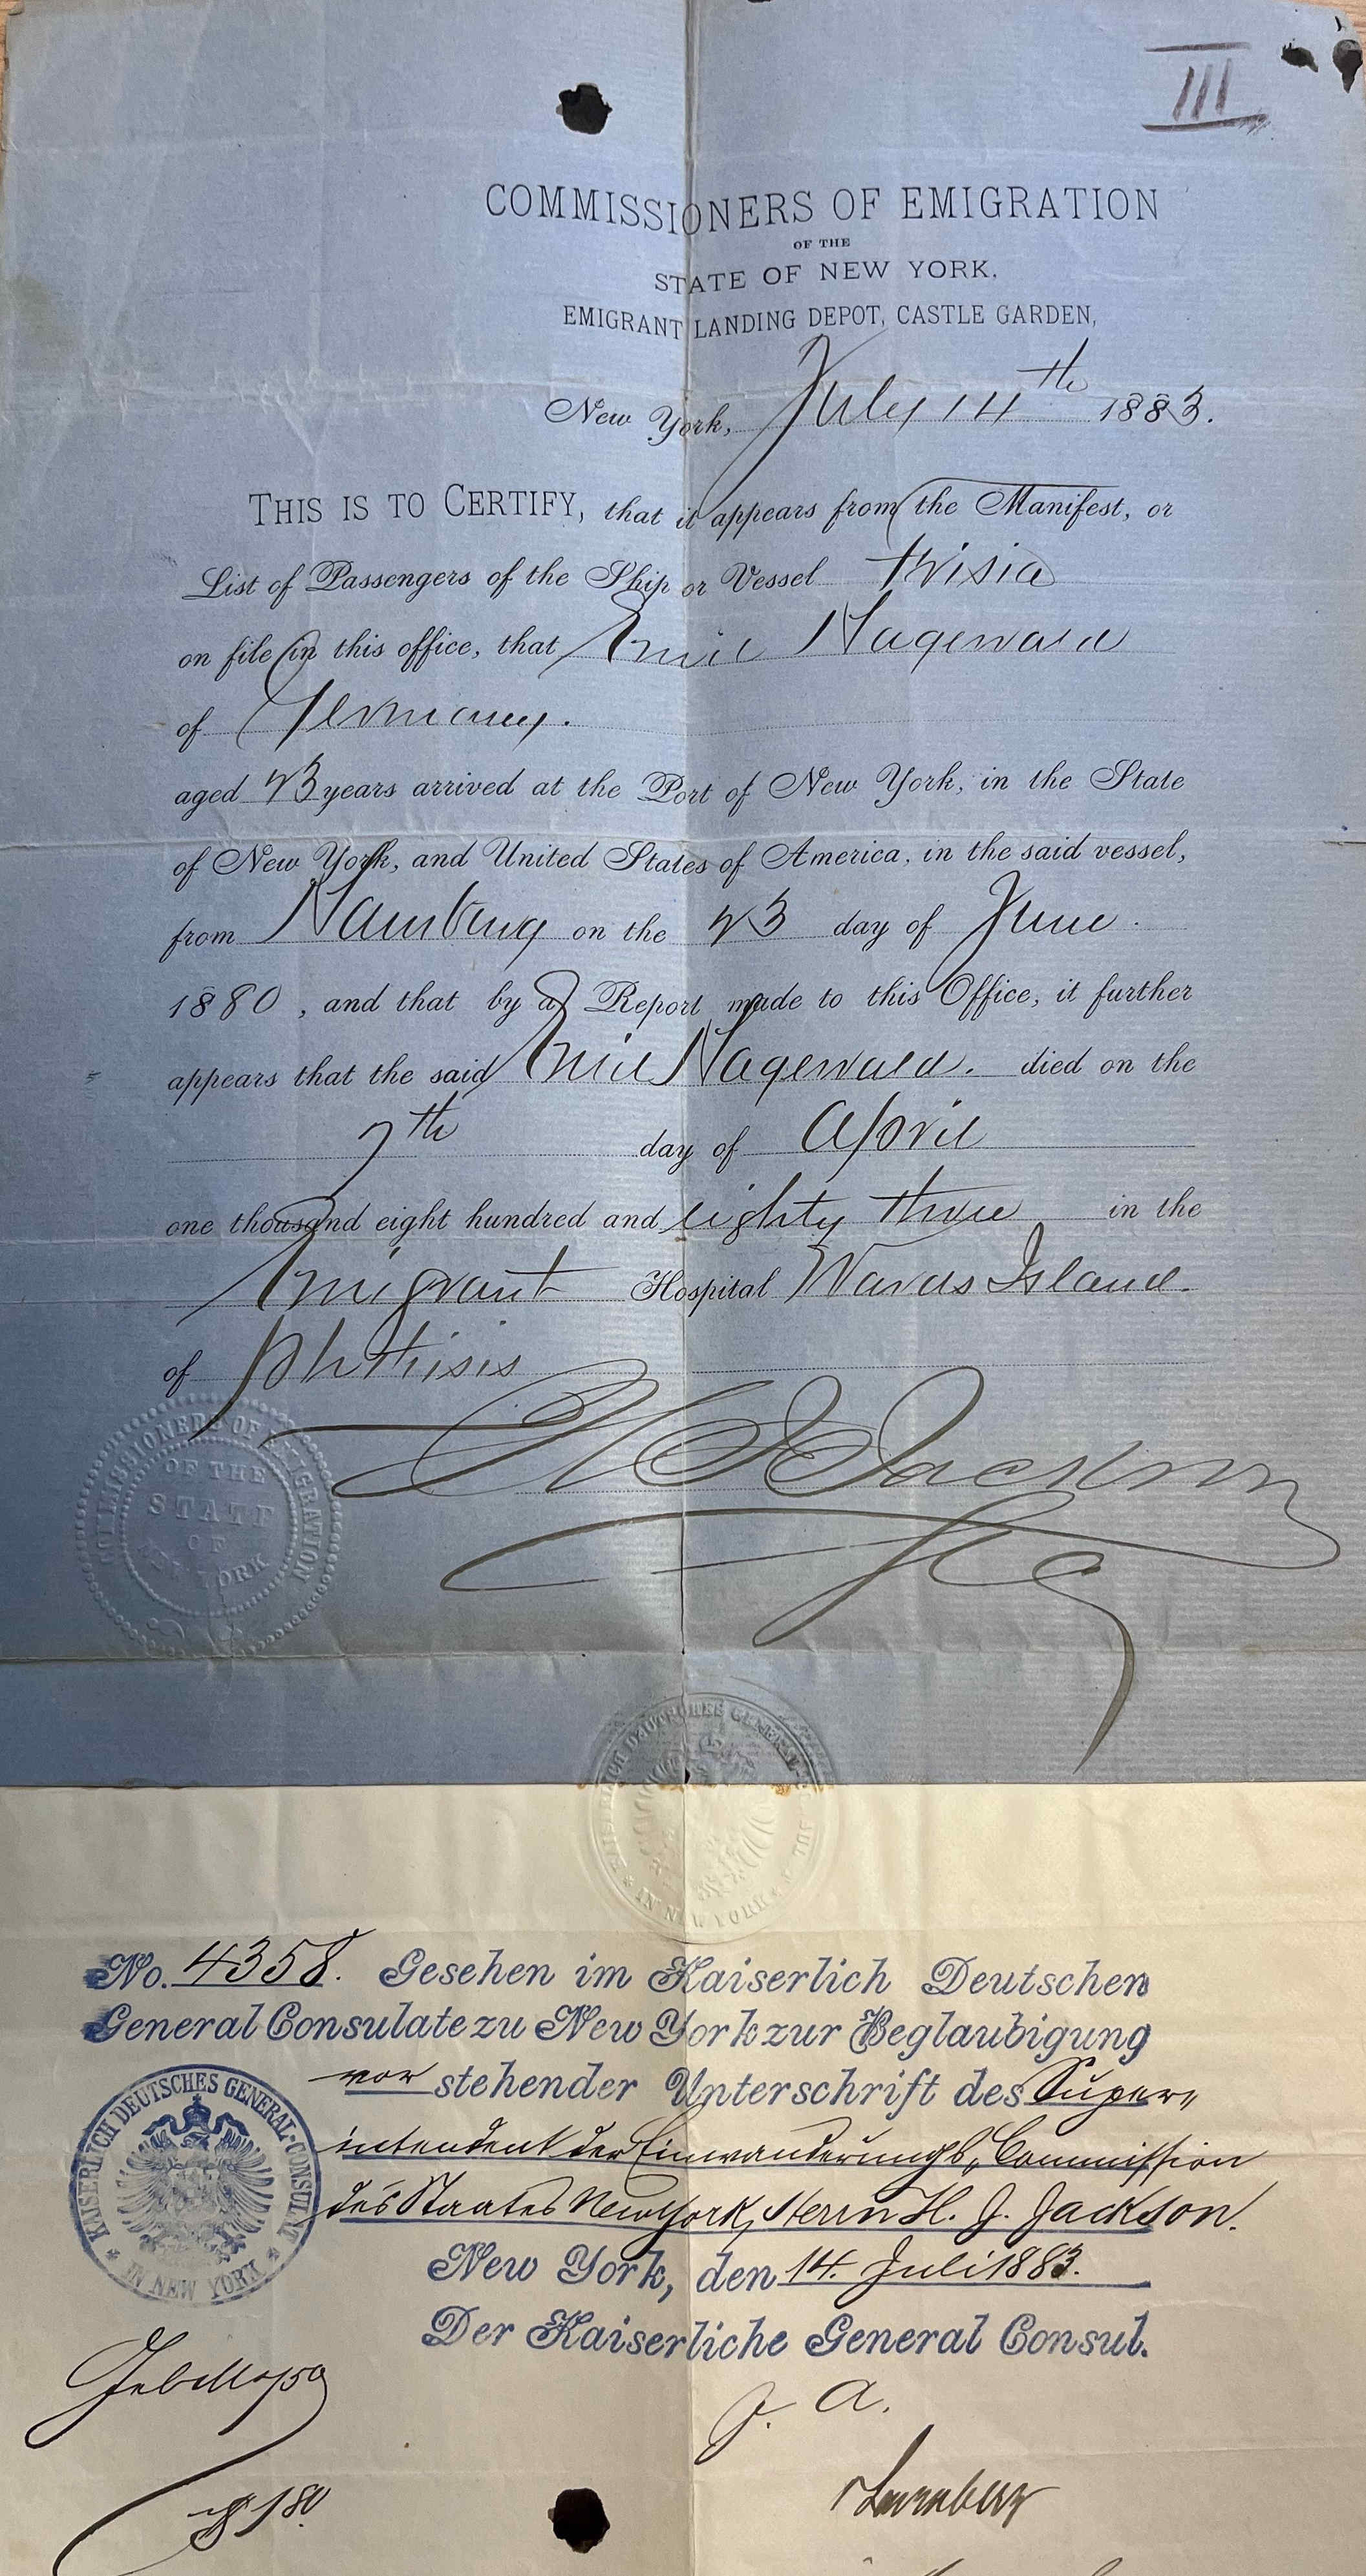 III
COMMISSIONERS OF EMIGRATION
OF THE
STATE OF NEW YORK.
EMIGRANT LANDING DEPOT, CASTLE GARDEN,
New York, July 14th 1883.
THIS IS TO CERTIFY, that it appears from the Manifest, or
List of Passengers of the Ship or Vessel Frisia
on file in this office, that Emil Hagewald
of Germany.
aged 23 years arrived at the Port of New York, in the State
of New York, and United States of America, in the said vessel,
from Hamburg on the 23 day of June
1880, and that by a Report made to this Office, it further
appears that the said Emil Hagewald. died on the
7th day of April
one thousand eight hundred and eighty three in the
Emigrant Hospital Wards Island.
of phthisis
H J Jackson
COMMISSIONERS OF EMIGRATION
OF THE
STATE
OF
NEW YORK
KAISERLICH DEUTSCHES GENERAL-CONSULAT
IN NEW YORK
No. 4358. Gesehen im Kaiserlich Deutschen
General Consulate zu New York zur Beglaubigung
vor stehender Unterschrift des Super-
intendent der Einwanderungs-Commission
des Staates New York, Herrn H. J. Jackson.
New York, den 14. Juli 1883.
Der Kaiserliche General Consul.
KAISERLICH DEUTSCHES GENERAL-CONSULAT
IN NEW YORK
J. A.
$1 80